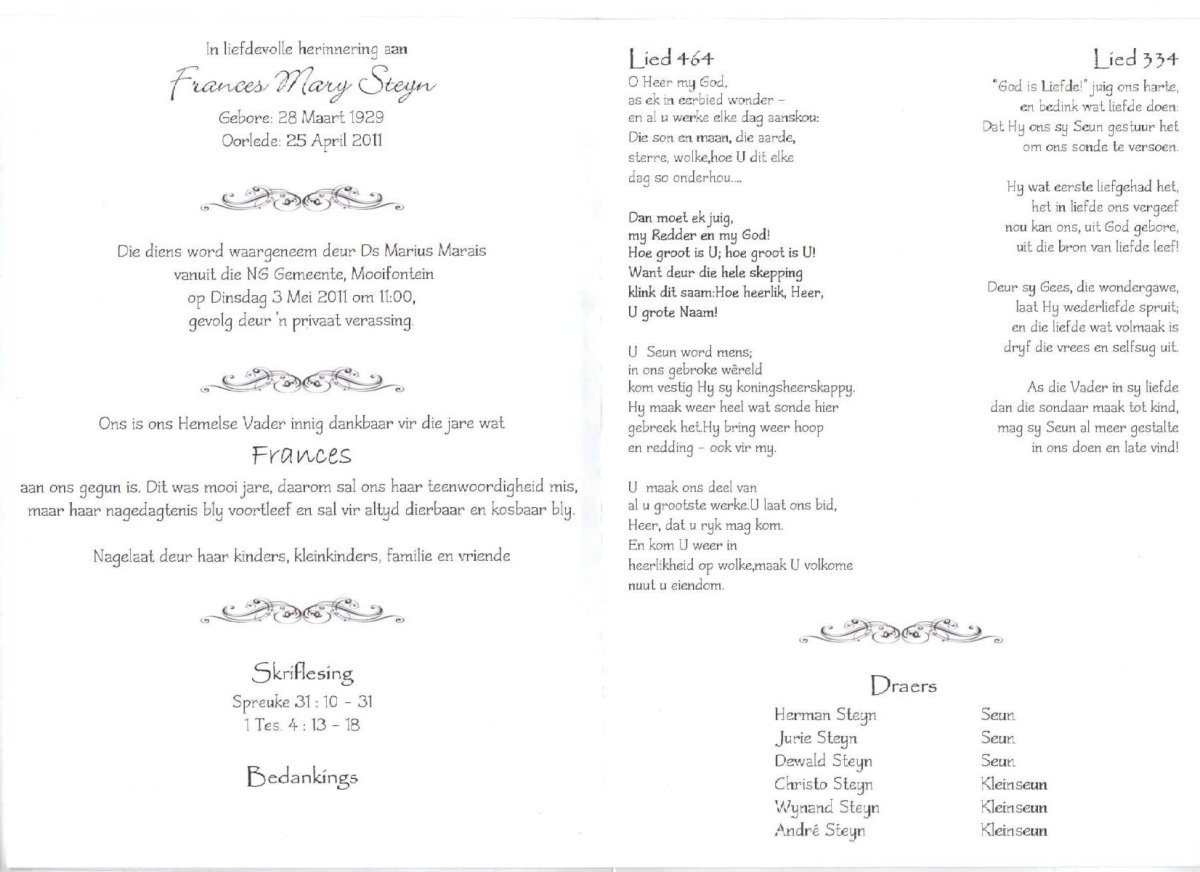 In liefdevolle herinnering aan
Frances Mary Steyn
Gebore: 28 Maart 1929
Oorlede: 25 April 2011
Die diens word waargeneem deur Ds Marius Marais
vanuit die NG Gemeente, Mooifontein
op Dinsdag 3 Mei 2011 om 11:00,
gevolg deur 'n privaat verassing.
Ons is ons Hemelse Vader innig dankbaar vir die jare wat
Frances
aan ons gegun is. Dit was mooi jare, daarom sal ons haar teenwoordigheid mis,
maar haar nagedagtenis bly voortleef en sal vir altyd dierbaar en kosbaar bly.
Nagelaat deur haar kinders, kleinkinders, familie en vriende
Skriflesing
Spreuke 31 : 10 - 31
1 Tes. 4 : 13 - 18
Bedankings
Lied 464
O Heer my God,
as ek in eerbied wonder -
en al u werke elke dag aanskou:
Die son en maan, die aarde,
sterre, wolke,hoe U dit elke
dag so onderhou....
Dan moet ek juig,
my Redder en my God!
Hoe groot is U; hoe groot is U!
Want deur die hele skepping
klink dit saam:Hoe heerlik, Heer,
U grote Naam!
U Seun word mens;
in ons gebroke wêreld
kom vestig Hy sy koningsheerskappy.
Hy maak weer heel wat sonde hier
gebreek het.Hy bring weer hoop
en redding - ook vir my.
U maak ons deel van
al u grootste werke.U laat ons bid,
Heer, dat u ryk mag kom.
En kom U weer in
heerlikheid op wolke,maak U volkome
nuut u eiendom.
Lied 334
"God is Liefde!" juig ons harte,
en bedink wat liefde doen:
Dat Hy ons sy Seun gestuur het
om ons sonde te versoen.
Hy wat eerste liefgehad het,
het in liefde ons vergeef
nou kan ons, uit God gebore,
uit die bron van liefde leef!
Deur sy Gees, die wondergawe,
laat Hy wederliefde spruit;
en die liefde wat volmaak is
dryf die vrees en selfsug uit.
As die Vader in sy liefde
dan die sondaar maak tot kind,
mag sy Seun al meer gestalte
in ons doen en late vind!
Draers
Herman Steyn Seun
Jurie Steyn Seun
Dewald Steyn Seun
Christo Steyn Kleinseun
Wynand Steyn Kleinseun
André Steyn Kleinseun